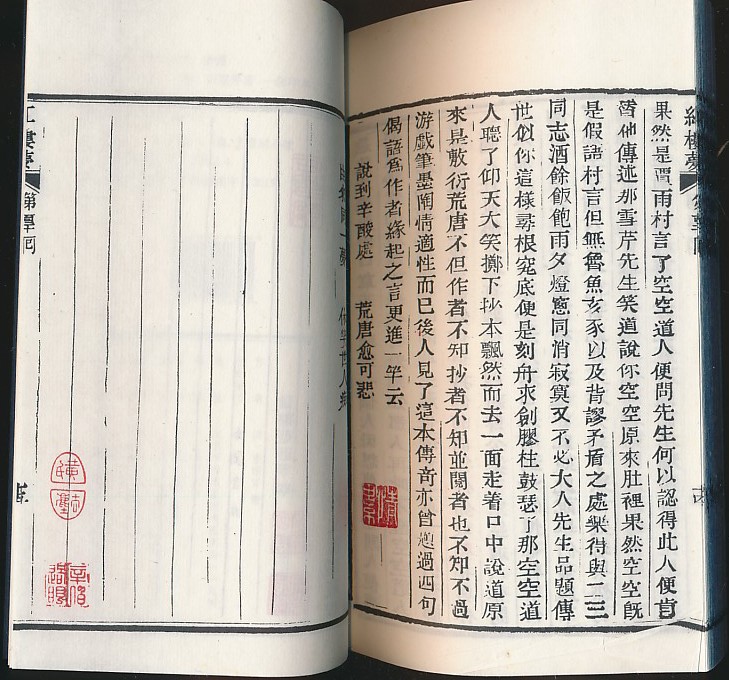 樓夢
果然是賈雨村言了空空道人便問先生何以認得此人便肯
替他傳述那雪芹先生笑道說你空空原來肚裡果然空空旣
是假語村言但無魯魚亥豕以及背謬矛盾之處樂得與二三
同志酒餘飯飽雨夕燈窻同消寂寞又不必大人先生品題傳
世似你這樣尋根究底便是刻舟求劍膠柱鼓瑟了那空空道
人聽了仰天大笑擲下抄本飄然而去一面走着口中說道原
來是敷衍荒唐不但作者不知抄者不知並閱者也不知不過
游戲筆墨陶情適性而已後人見了這本傳奇亦曾題過四句
偈語爲作者緣起之言更進一竿云
說到辛酸處 荒唐愈可悲
樓夢